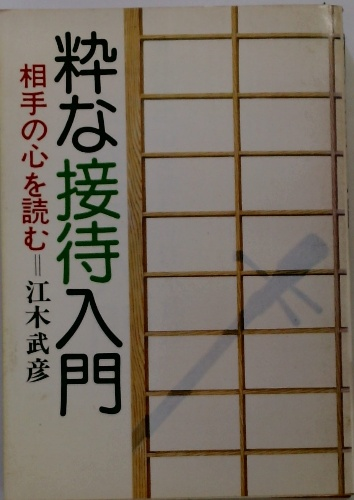 粋な接待入門
相手の心を読む=江木武彦